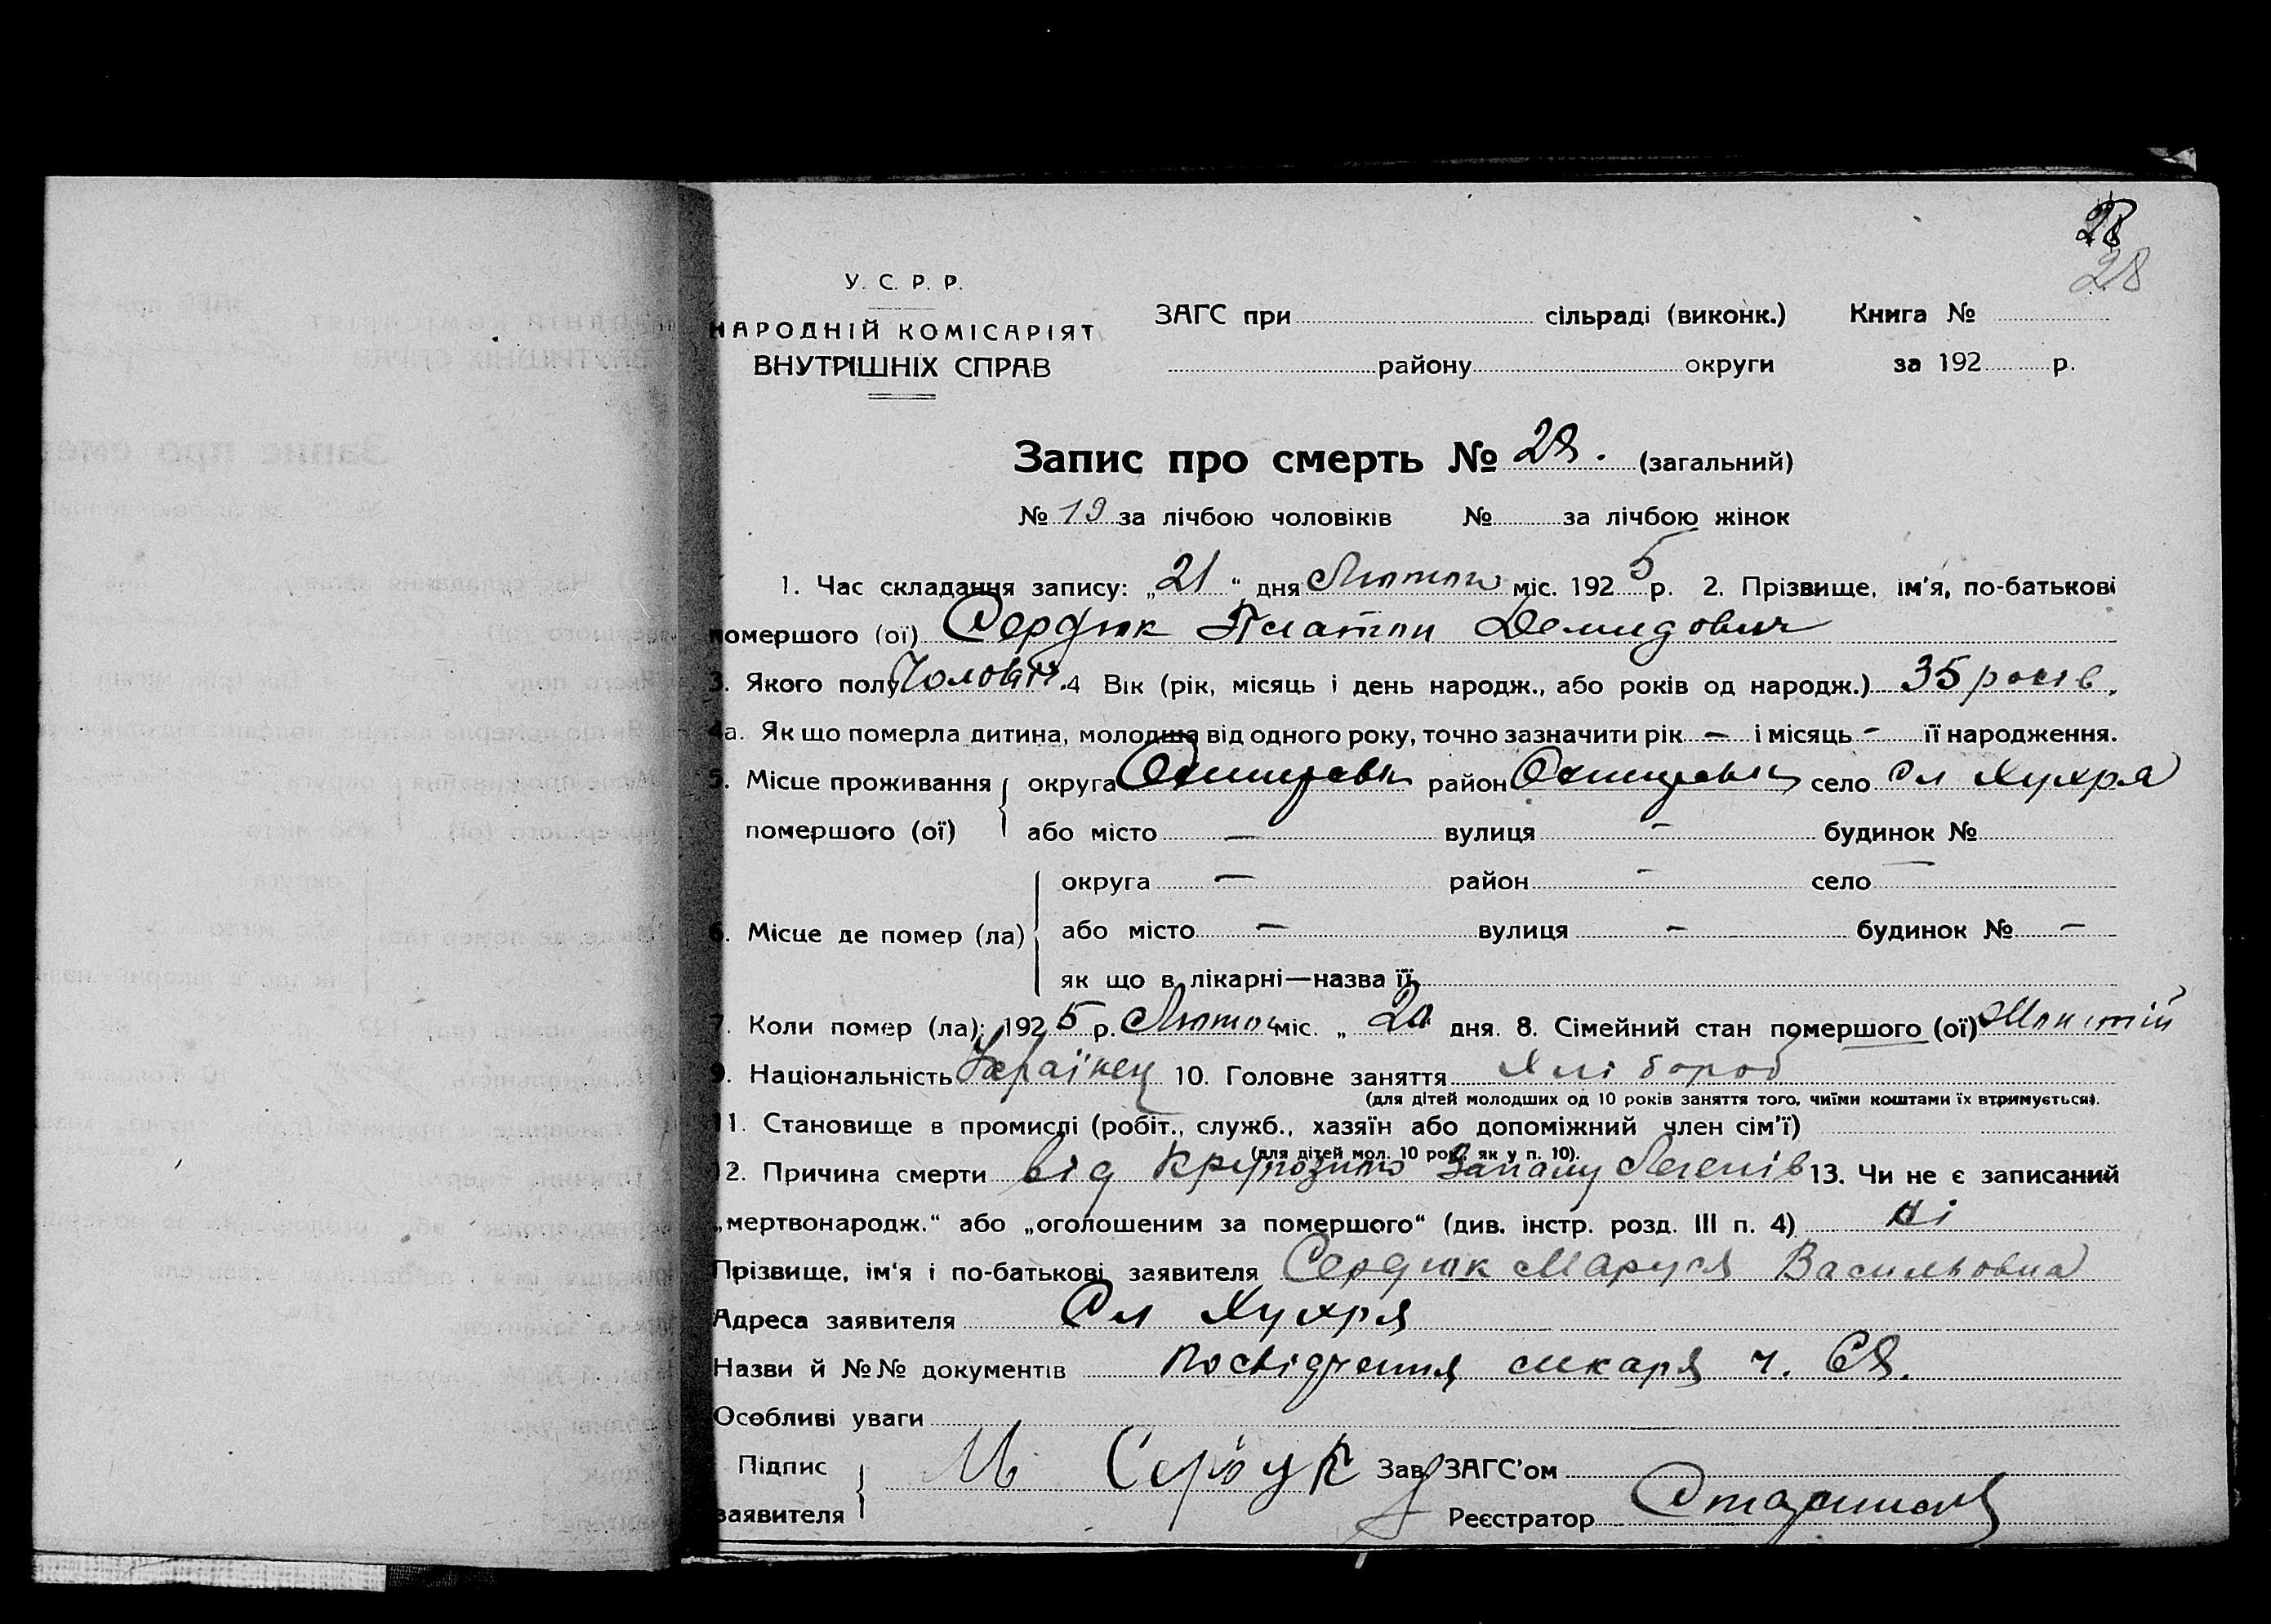 28
28
У. С. Р. Р.
НАРОДНІЙ КОМІСАРІЯТ
ВНУТРІШНІХ СПРАВ
ЗАГС при сільраді (виконк.) Книга №
району округи за 192 р.
Запис про смерть № 28. (загальний)
№ 19 за лічбою чоловіків № за лічбою жінок
1. Час складання запису: „21“ дня Лютого міс. 1925 р. 2. Прізвище, ім'я, по-батькові
помершого (ої) Сердюк Платон Демидович
3. Якого полу Чоловіч. 4 Вік (рік, місяць і день народж., або років од народж.) 35 років.
4а. Як що померла дитина, молодша від одного року, точно зазначити рік — і місяць - її народження.
5. Місце проживання округа район село Сл Хухря
помершого (ої) або місто — вулиця - будинок №
округа — район - село —
6. Місце де помер (ла) або місто — вулиця - будинок № —
як що в лікарні—назва її
7. Коли помер (ла): 1925 р. Лютого міс. „ 20 дня. 8. Сімейний стан помершого (ої)
9. Національність Українец 10. Головне заняття Хлібороб
(для дітей молодших од 10 років заняття того, чиїми коштами їх втримується).
11. Становище в промислі (робіт., служб., хазяїн або допоміжний член сім'ї)
(для дітей мол. 10 рок. як у п. 10).
12. Причина смерти від крупозного запалу Легенів 13. Чи не є записаний
„мертвонародж.“ або „оголошеним за помершого“ (див. інстр. розд. III п. 4) ні
Прізвище, ім'я і по-батькові заявителя Сердюк Маруся Васильовна
Адреса заявителя Сл Хухря
Назви й №№ документів Посвідчення ликаря ч. 68.
Особливі уваги
Підпис М Сердук Зав. ЗАГС'ом
заявителя Реєстратор